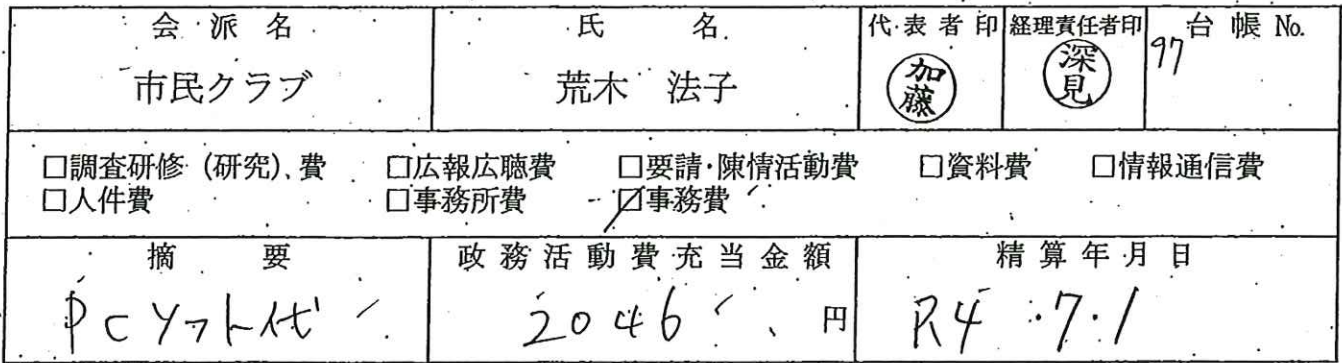 会派名 氏名 代表者印 経理責任者印 台帳No.
市民クラブ 荒木 法子 加藤 深見 97
□調査研修(研究)費 □広報広聴費 □要請・陳情活動費 □資料費 □情報通信費
□人件費 □事務所費 ☑事務費
摘要 政務活動費充当金額 精算年月日
PCソフト代 2046 円 R4.7.1